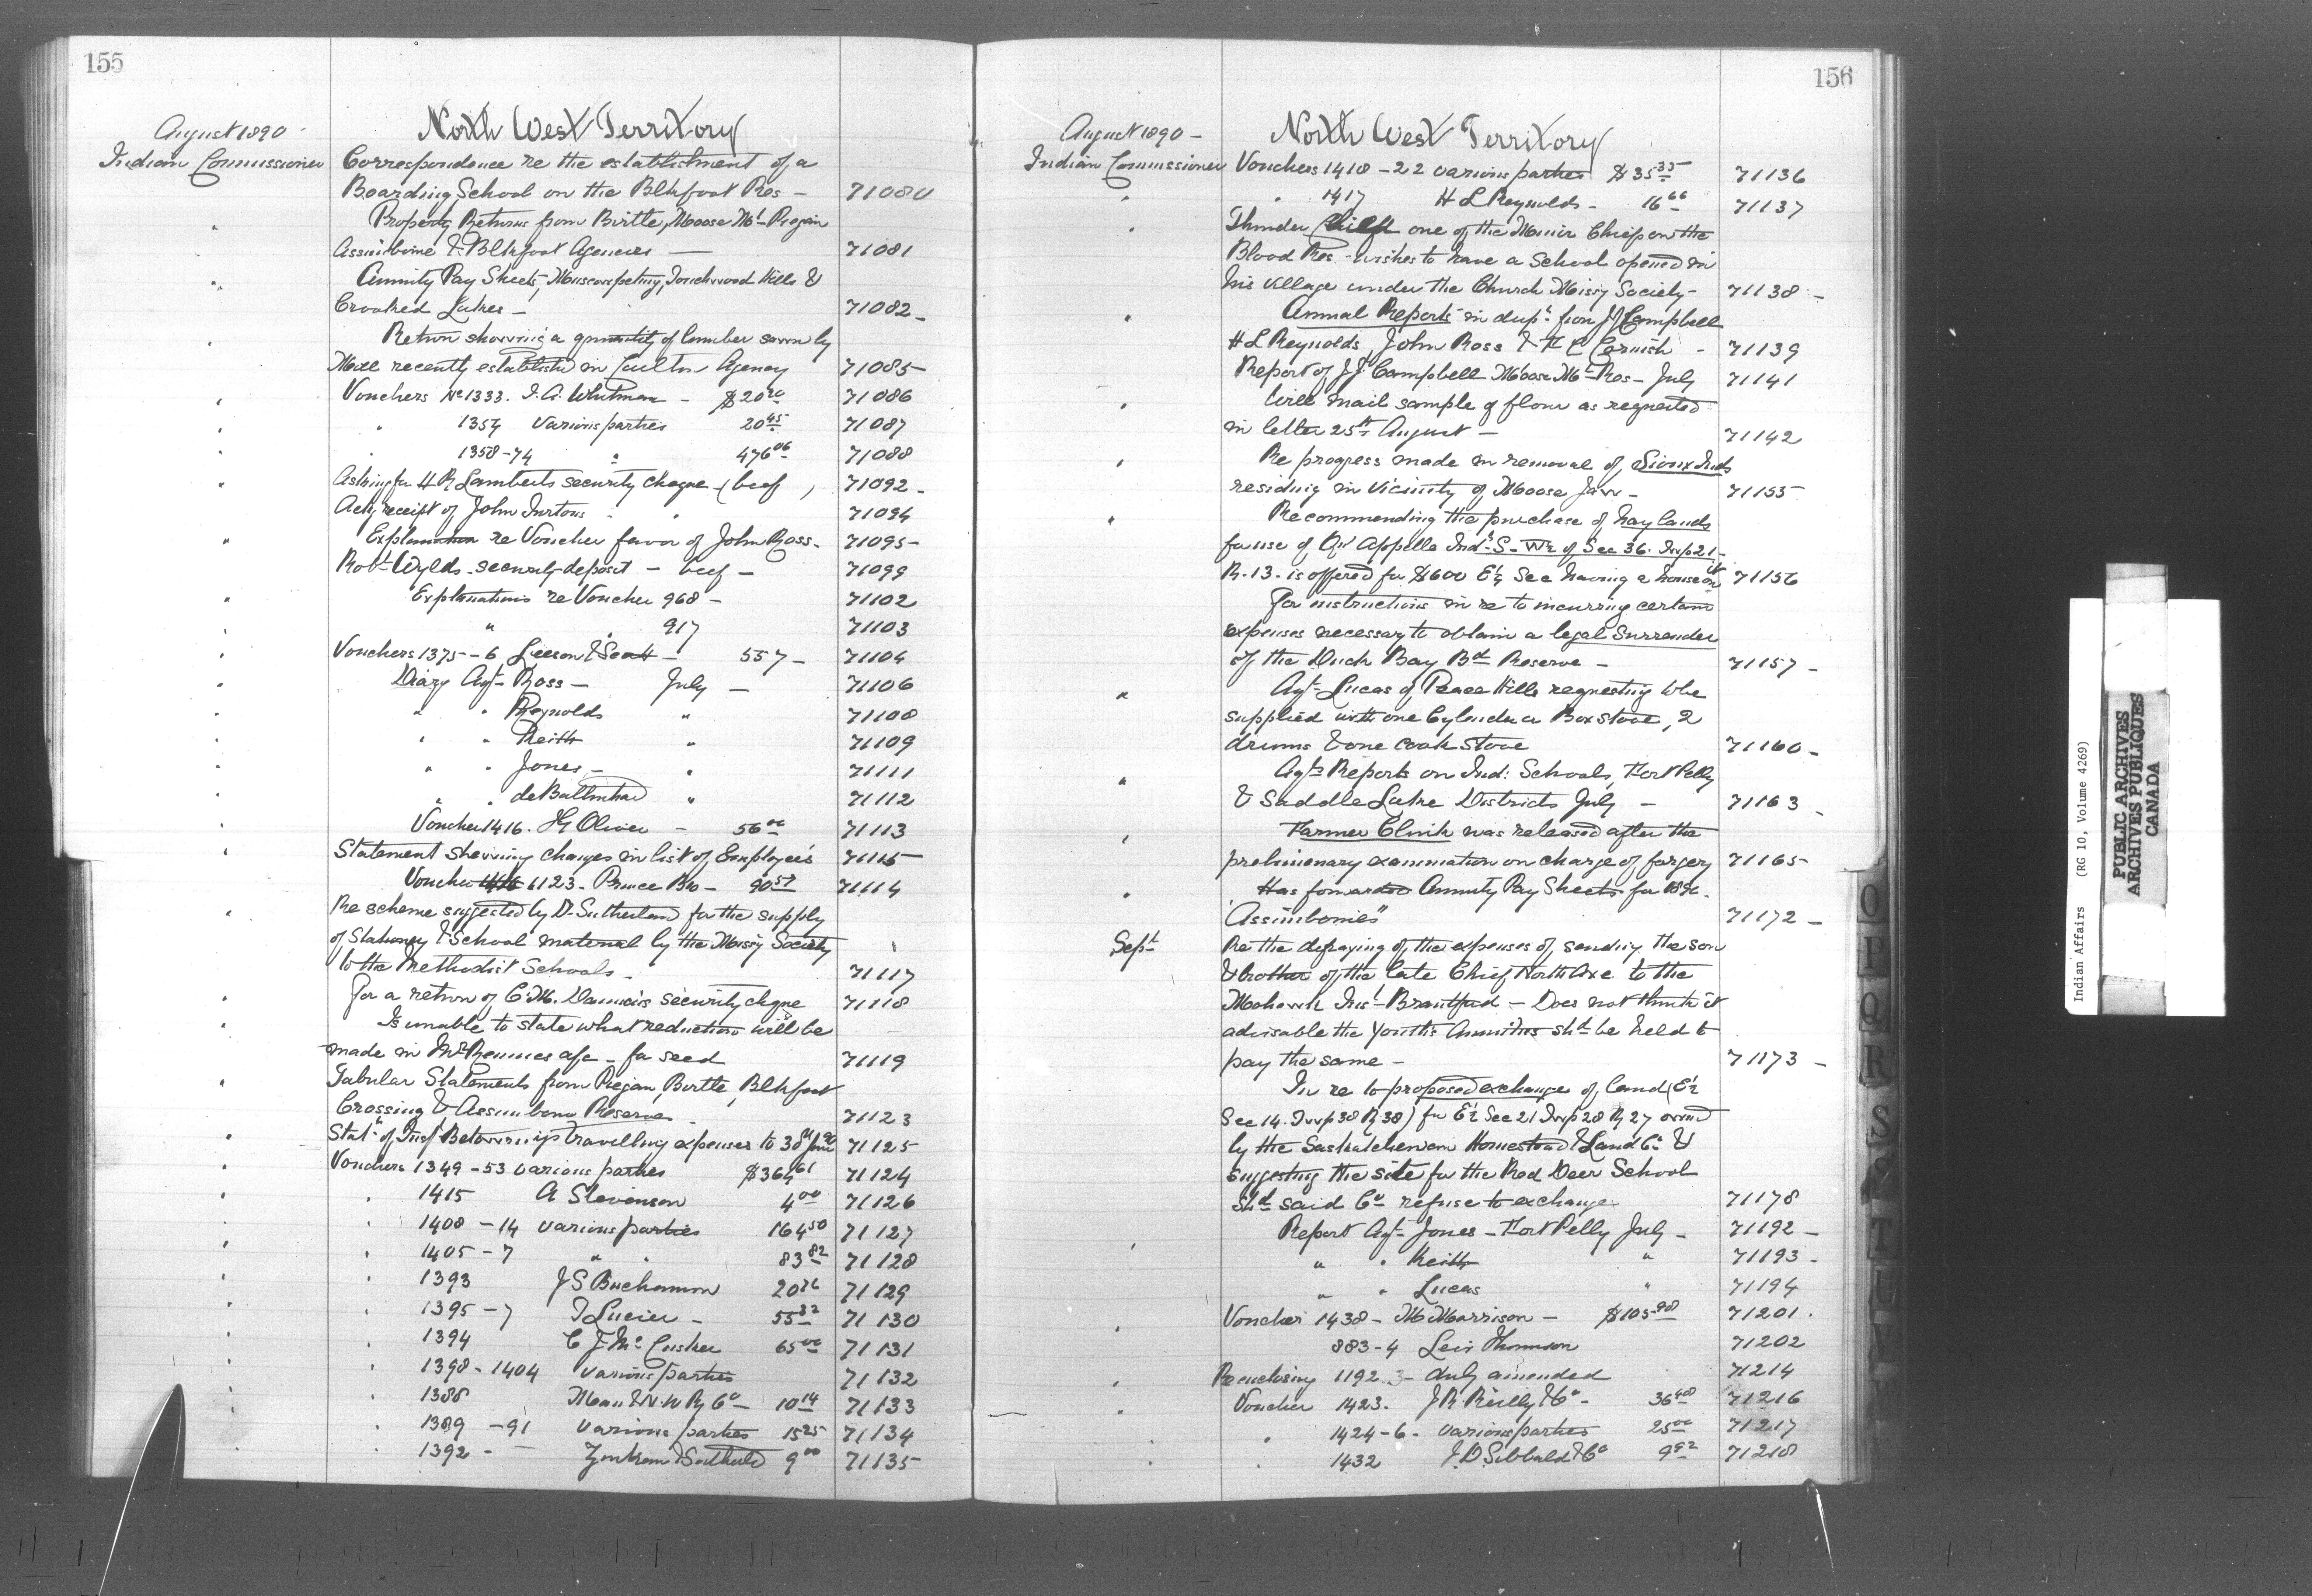 155
North West Territory
August 1890 -
Indian Commissioner Correspondence re the establishment of a
Boarding School on the Blkfoot Res - 71080
" Property Returns from Birtle, Moose Mt Piegan
Assiniboine & Blkfoot Agencies - 71081
" Annuity Pay Sheets, Muscowpetung, Touchwood Hills &
Crooked Lakes - 71082 -
" Return showing a quantity of lumber sawn by
Mill recently established in Agency 71085
" Vouchers No 1333. Whitman - $20 71086
" " 1354 Various parties 20 45 71087
" " 1358-74 " 476 06 71088
" Asking for H R Lamberts security cheque (beef) 71092 -
Ackg receipt of John " 71094
" Explanation re Voucher favor of John Ross - 71095
Robt Wylds security deposit - beef - 71099
" Explanations re Voucher 968 - 71102
" " " 917 71103
" Vouchers 1375-6 Leeson & Scott - 557 - 71104
" Diary Agt Ross - July - 71106
" " " Reynolds " 71108
" " " Keith " 71109
" " " Jones - " 71111
" " " de Balinhard " 71112
" Voucher 1416. Oliver - 56 00 71113
" Statement shewing changes in list of Employees 71115
Voucher 1123 - Prince Bro - 90 71114
" Re scheme suggested by Dr Sutherland for the supply
of Stationery & School material by the Missy Society
to the Methodist Schools - 71117
" For a return of C. M. Daunais security cheque 71118
" Is unable to state what reduction will be
made in a/c - for seed 71119
" Tabular Statements from Piegan, Birtle, Blkfoot
Crossing & Assiniboine Reserve 71123
" Statt of Inspr travelling expenses to 30th June 90 71125
" Vouchers 1349-53 various parties $364 61 71124
" " 1415 A Stevenson 4 00 71126
" " 1408-14 various parties 164 50 71127
" " 1405-7 " " 83 82 71128
" " 1393 J S Buchannon 20 71129
" " 1395-7 Lucier - 55 82 71130
" " 1394 Mc Cusker 65 00 71131
" " 1398-1404 various parties 71132
" " 1388 Man & N.W Ry Co - 10 14 71133
" " 1389-91 Various parties 15 25 71134
" " 1392 - 9 00 71135
156
North West Territory
August 1890 -
Indian Commissioner Vouchers 1418-22 various parties $35 35 71136
" " 1417 H L Reynolds - 16 66 71137
" Thunder Chief one of the Minor Chiefs on the
Blood Res - wishes to have a School opened in
his village under the Church Missy Society - 71138 -
" Annual Reports in dupt from J J Campbell
H L Reynolds, John Ross & F C Cornish - 71139
Report of J J Campbell Moose Mt Res - July 71141
" Will mail sample of flour as requested
in letter 25th August - 71142
" Re progress made in removal of Sioux Inds
residing in vicinity of Moose Jaw - 71155
" Recommending the purchase of hay lands
for use of Qu'Appelle Inds - S - W½ of Sec 36. Twp 21 -
R. 13 - is offered for $600 E½ Sec having a house on it 71156
For instructions in re to incurring certain
expenses necessary to obtain a legal surrender
of the Duck Bay Bd Reserve - 71157 -
" Agt Lucas of Peace Hills requesting to be
supplied with one Cylinder a Box stove, 2
drums & one cook stove 71160 -
" Agts Reports on Ind: Schools, Fort Pelly
& Saddle Lake Districts July - 71163 -
" Farmer Clink was released after the
preliminary examination on charge of forgery 71165
" Has forwarded Annuity Pay Sheets for 1890.
"Assiniboines" 71172 -
Sept Re the defraying of the expenses of sending the son
& brother of the late Chief North Axe to the
Mohawk Inst Brantford - Does not think it
advisable the Youths Annuities shd be held to
pay the same - 71173 -
In re to proposed exchange of land (E½
Sec 14. Twp 38 R 38) for E½ Sec 21 Twp 28 R 27 owned
by the Saskatchewan Homestead & Land Co &
suggesting the site for the Red Deer School
shd said Co refuse to exchange 71178
Report Agt Jones - Fort Pelly July - 71192 -
" " " Keith " 71193 -
" " Lucas " 71194
" Voucher 1438 - M Morrison - $105 71201.
883-4 Thomson 71202
" Re enclosing 1192 duly amended 71214
" Voucher 1423. J R Reilly & Co - 36 71216
" " 1424-6 - various parties 25 00 71217
" " 1432 J. D. Sibbald & Co 9 92 71218
O
P
Q
R
S
T
Indian Affairs (RG 10, Volume 4269)
PUBLIC ARCHIVES
ARCHIVES PUBLIQUES
CANADA